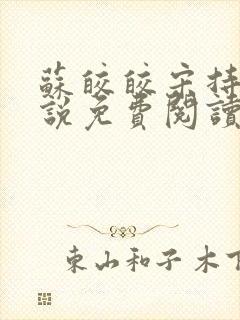 蘇皎皎宋持
說免費閱讀
東山和子木下